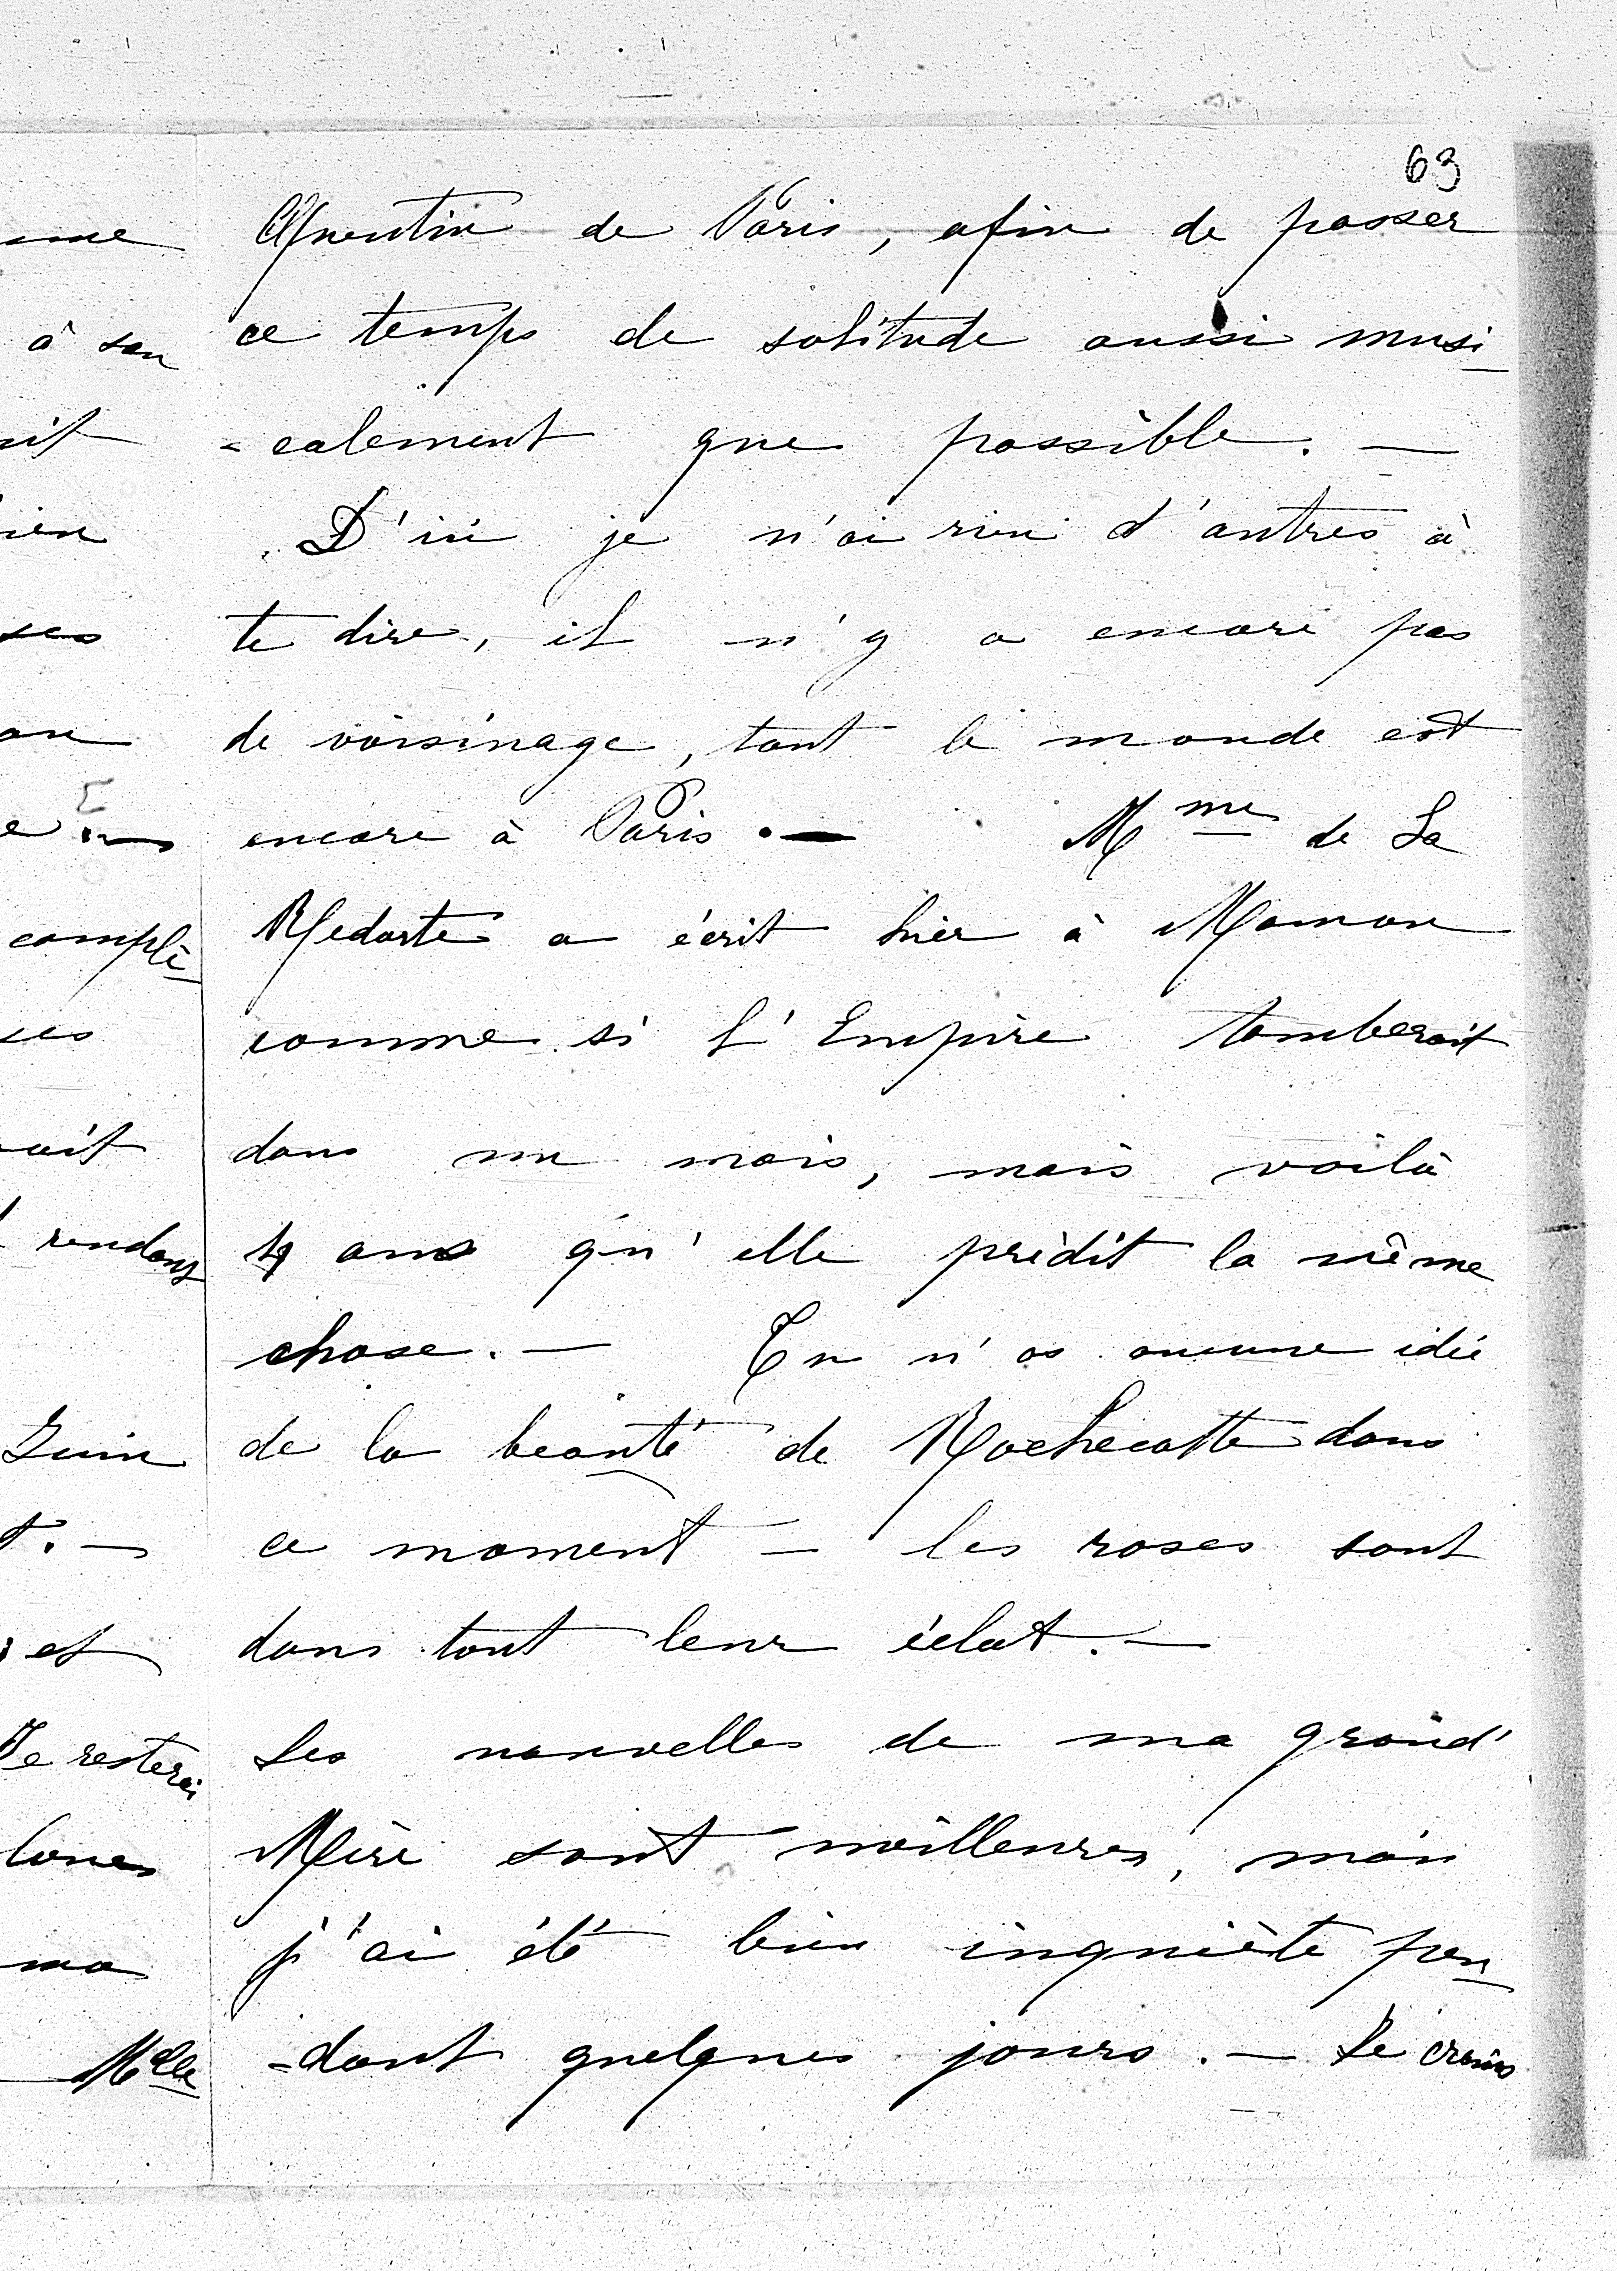 63
de Paris, afin de passer
ce temps de solitude aussi musi
=calement que possible. —
D'ici je n'ai rien d'autres à
te dire, il n'y a encore pas
de voisinage, tout le monde est
encore à Paris. — Mme de La
Redorte a écrit hier à Maman
comme si l'Empire tomberait
dans un mois, mais voilà
ans qu'elle prédit la même
chose. — Tu n'as aucune idée
de la beauté de Rochecotte dans
ce moment — les roses sont
dans tout leur éclat. —
Les nouvelles de ma grand'
Mère sont meilleures, mais
j'ai été bien inquiète pen
=dant quelques jours. — Je crains
à son
complè
rendons
Juin
et
Je resterai
ma
Melle